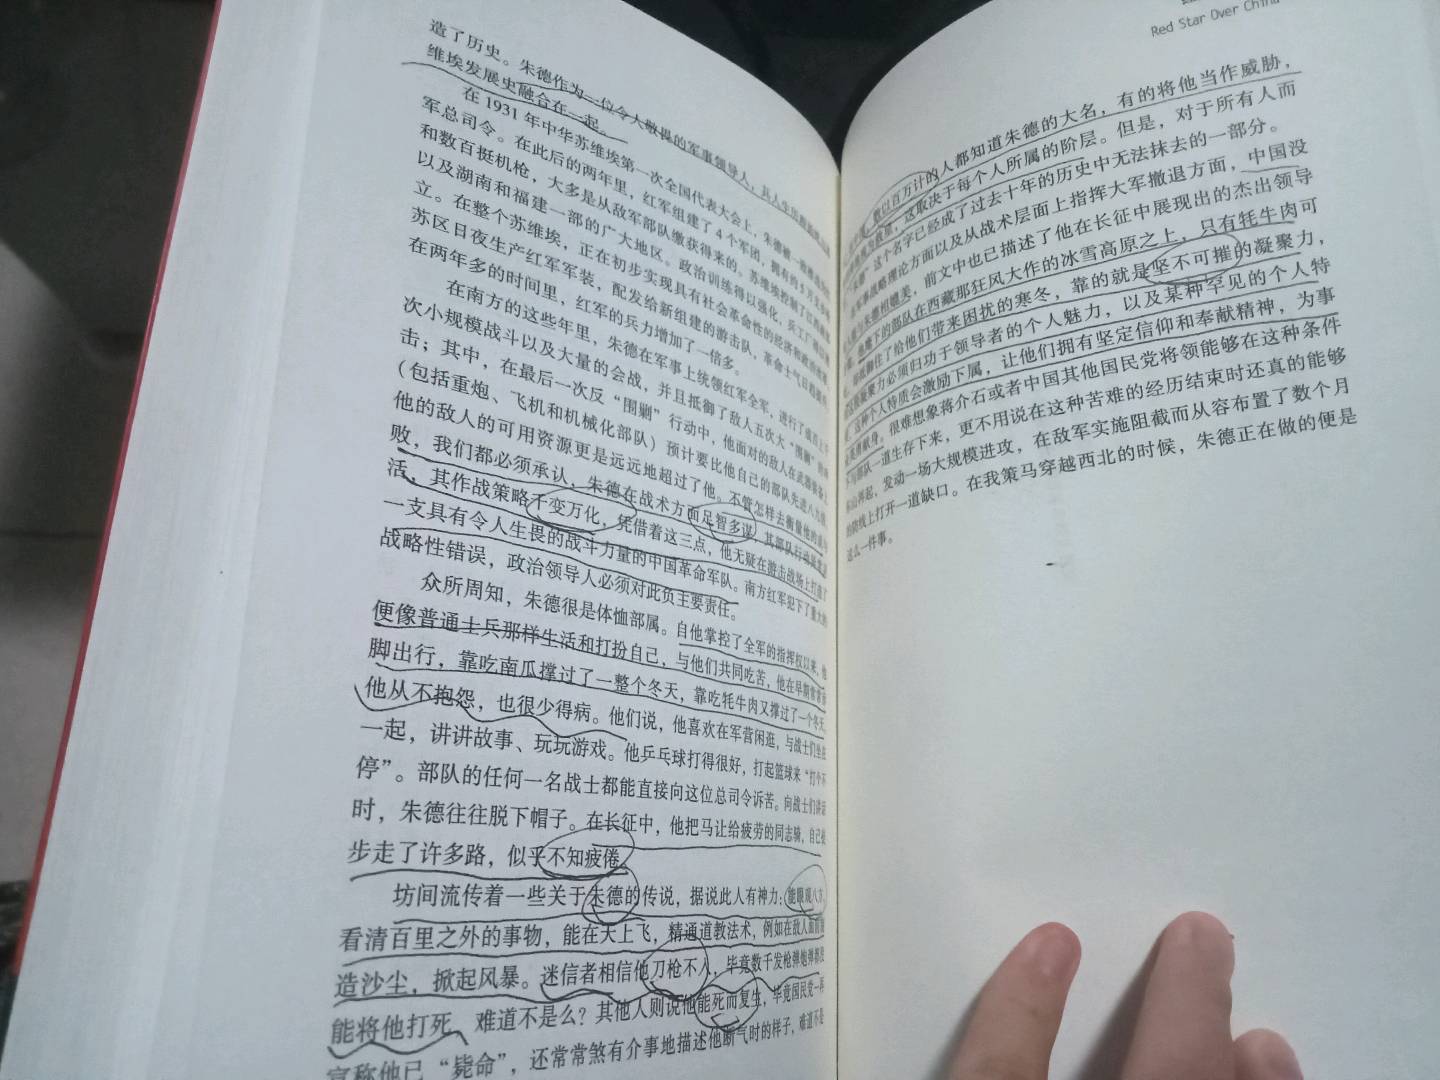 造了历史。朱德作为一位令人敬畏的军事领导人，其人生
维埃发展史融合在一起。
在 1931 年中华苏维埃第一次全国代表大会上，朱德被一致
军总司令。在此后的两年里，红军组建了 4 个军团，拥有约 5 万
和数百挺机枪，大多是从敌军部队缴获得来的。苏维埃控制了
以及湖南和福建一部的广大地区。政治训练得以强化，兵工厂
立。在整个苏维埃，正在初步实现具有社会革命性的经济和政治
苏区日夜生产红军军装，配发给新组建的游击队，革命士气日
在两年多的时间里，红军的兵力增加了一倍多。
在南方的这些年里，朱德在军事上统领红军全军，进行了
次小规模战斗以及大量的会战，并且抵御了敌人五次大“围剿”
击；其中，在最后一次反“围剿”行动中，他面对的敌人在武器装备上
（包括重炮、飞机和机械化部队）预计要比他自己的部队先进八九倍，
他的敌人的可用资源更是远远地超过了他。不管怎样去衡量他的
败，我们都必须承认，朱德在战术方面足智多谋，其部队行动
活，其作战策略千变万化，凭借着这三点，他无疑在游击战场上打造了
一支具有令人生畏的战斗力量的中国革命军队。南方红军犯下了重大的
战略性错误，政治领导人必须对此负主要责任。
众所周知，朱德很是体恤部属。自他掌控了全军的指挥权以来，他
便像普通士兵那样生活和打扮自己，与他们共同吃苦，他在早期常常赤
脚出行，靠吃南瓜撑过了一整个冬天，靠吃牦牛肉又撑过了一个冬天，
他从不抱怨，也很少得病。他们说，他喜欢在军营闲逛，与战士们坐在
一起，讲讲故事、玩玩游戏。他乒乓球打得很好，打起篮球来“打个不
停”。部队的任何一名战士都能直接向这位总司令诉苦。向战士们讲话
时，朱德往往脱下帽子。在长征中，他把马让给疲劳的同志骑，自己
步走了许多路，似乎不知疲倦。
坊间流传着一些关于朱德的传说，据说此人有神力：能眼观八方，
看清百里之外的事物，能在天上飞，精通道教法术，例如在敌人面前
造沙尘，掀起风暴。迷信者相信他刀枪不入，毕竟数千发枪弹炮弹都
能将他打死，难道不是么？其他人则说他能死而复生，毕竟国民党一再
宣称他已“毙命”，还常常煞有介事地描述他断气时的样子，难道不是
Red Star Over China
数以百万计的人都知道朱德的大名，有的将他当作威胁，
这取决于每个人所属的阶层。但是，对于所有人而
这个名字已经成了过去十年的历史中无法抹去的一部分。
军事战略理论方面以及从战术层面上指挥大军撤退方面，中国没
与朱德相媲美，前文中也已描述了他在长征中展现出的杰出领导
他麾下的部队在西藏那狂风大作的冰雪高原之上，只有牦牛肉可
抵御住了给他们带来困扰的寒冬，靠的就是坚不可摧的凝聚力，
凝聚力必须归功于领导者的个人魅力，以及某种罕见的个人特
这种个人特质会激励下属，让他们拥有坚定信仰和奉献精神，为事
献身。很难想象蒋介石或者中国其他国民党将领能够在这种条件
与部队一道生存下来，更不用说在这种苦难的经历结束时还真的能够
东山再起，发动一场大规模进攻，在敌军实施阻截而从容布置了数个月
的防线上打开一道缺口。在我策马穿越西北的时候，朱德正在做的便是
这么一件事。